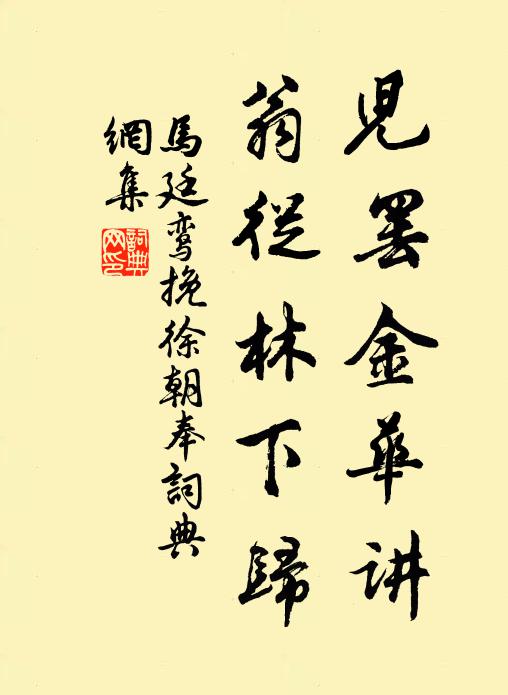 児罢金華讲
翁從林下歸
馬廷鸾挽徐朝奉詞典
網集
詞典
网印